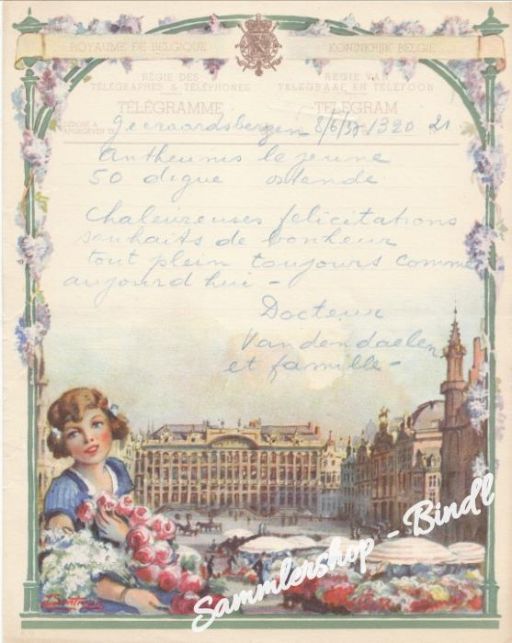 ROYAUME DE BELGIQUE KONINKRIJK BELGIE
RÉGIE DES REGIE VAN
TÉLÉGRAPHES & TÉLÉPHONES TELEGRAAF EN TELEFOON
TÉLÉGRAMME TELEGRAM
Geeraardsbergen 8/6/57 1320 21
Antheunis lejeune
50 digue ostende
Chaleureuses felicitations
souhaits de bonheur
tout plein toujours comme
aujourd hui -
Docteur
Vandendaelen
et famille -
Sammlershop - Bindl